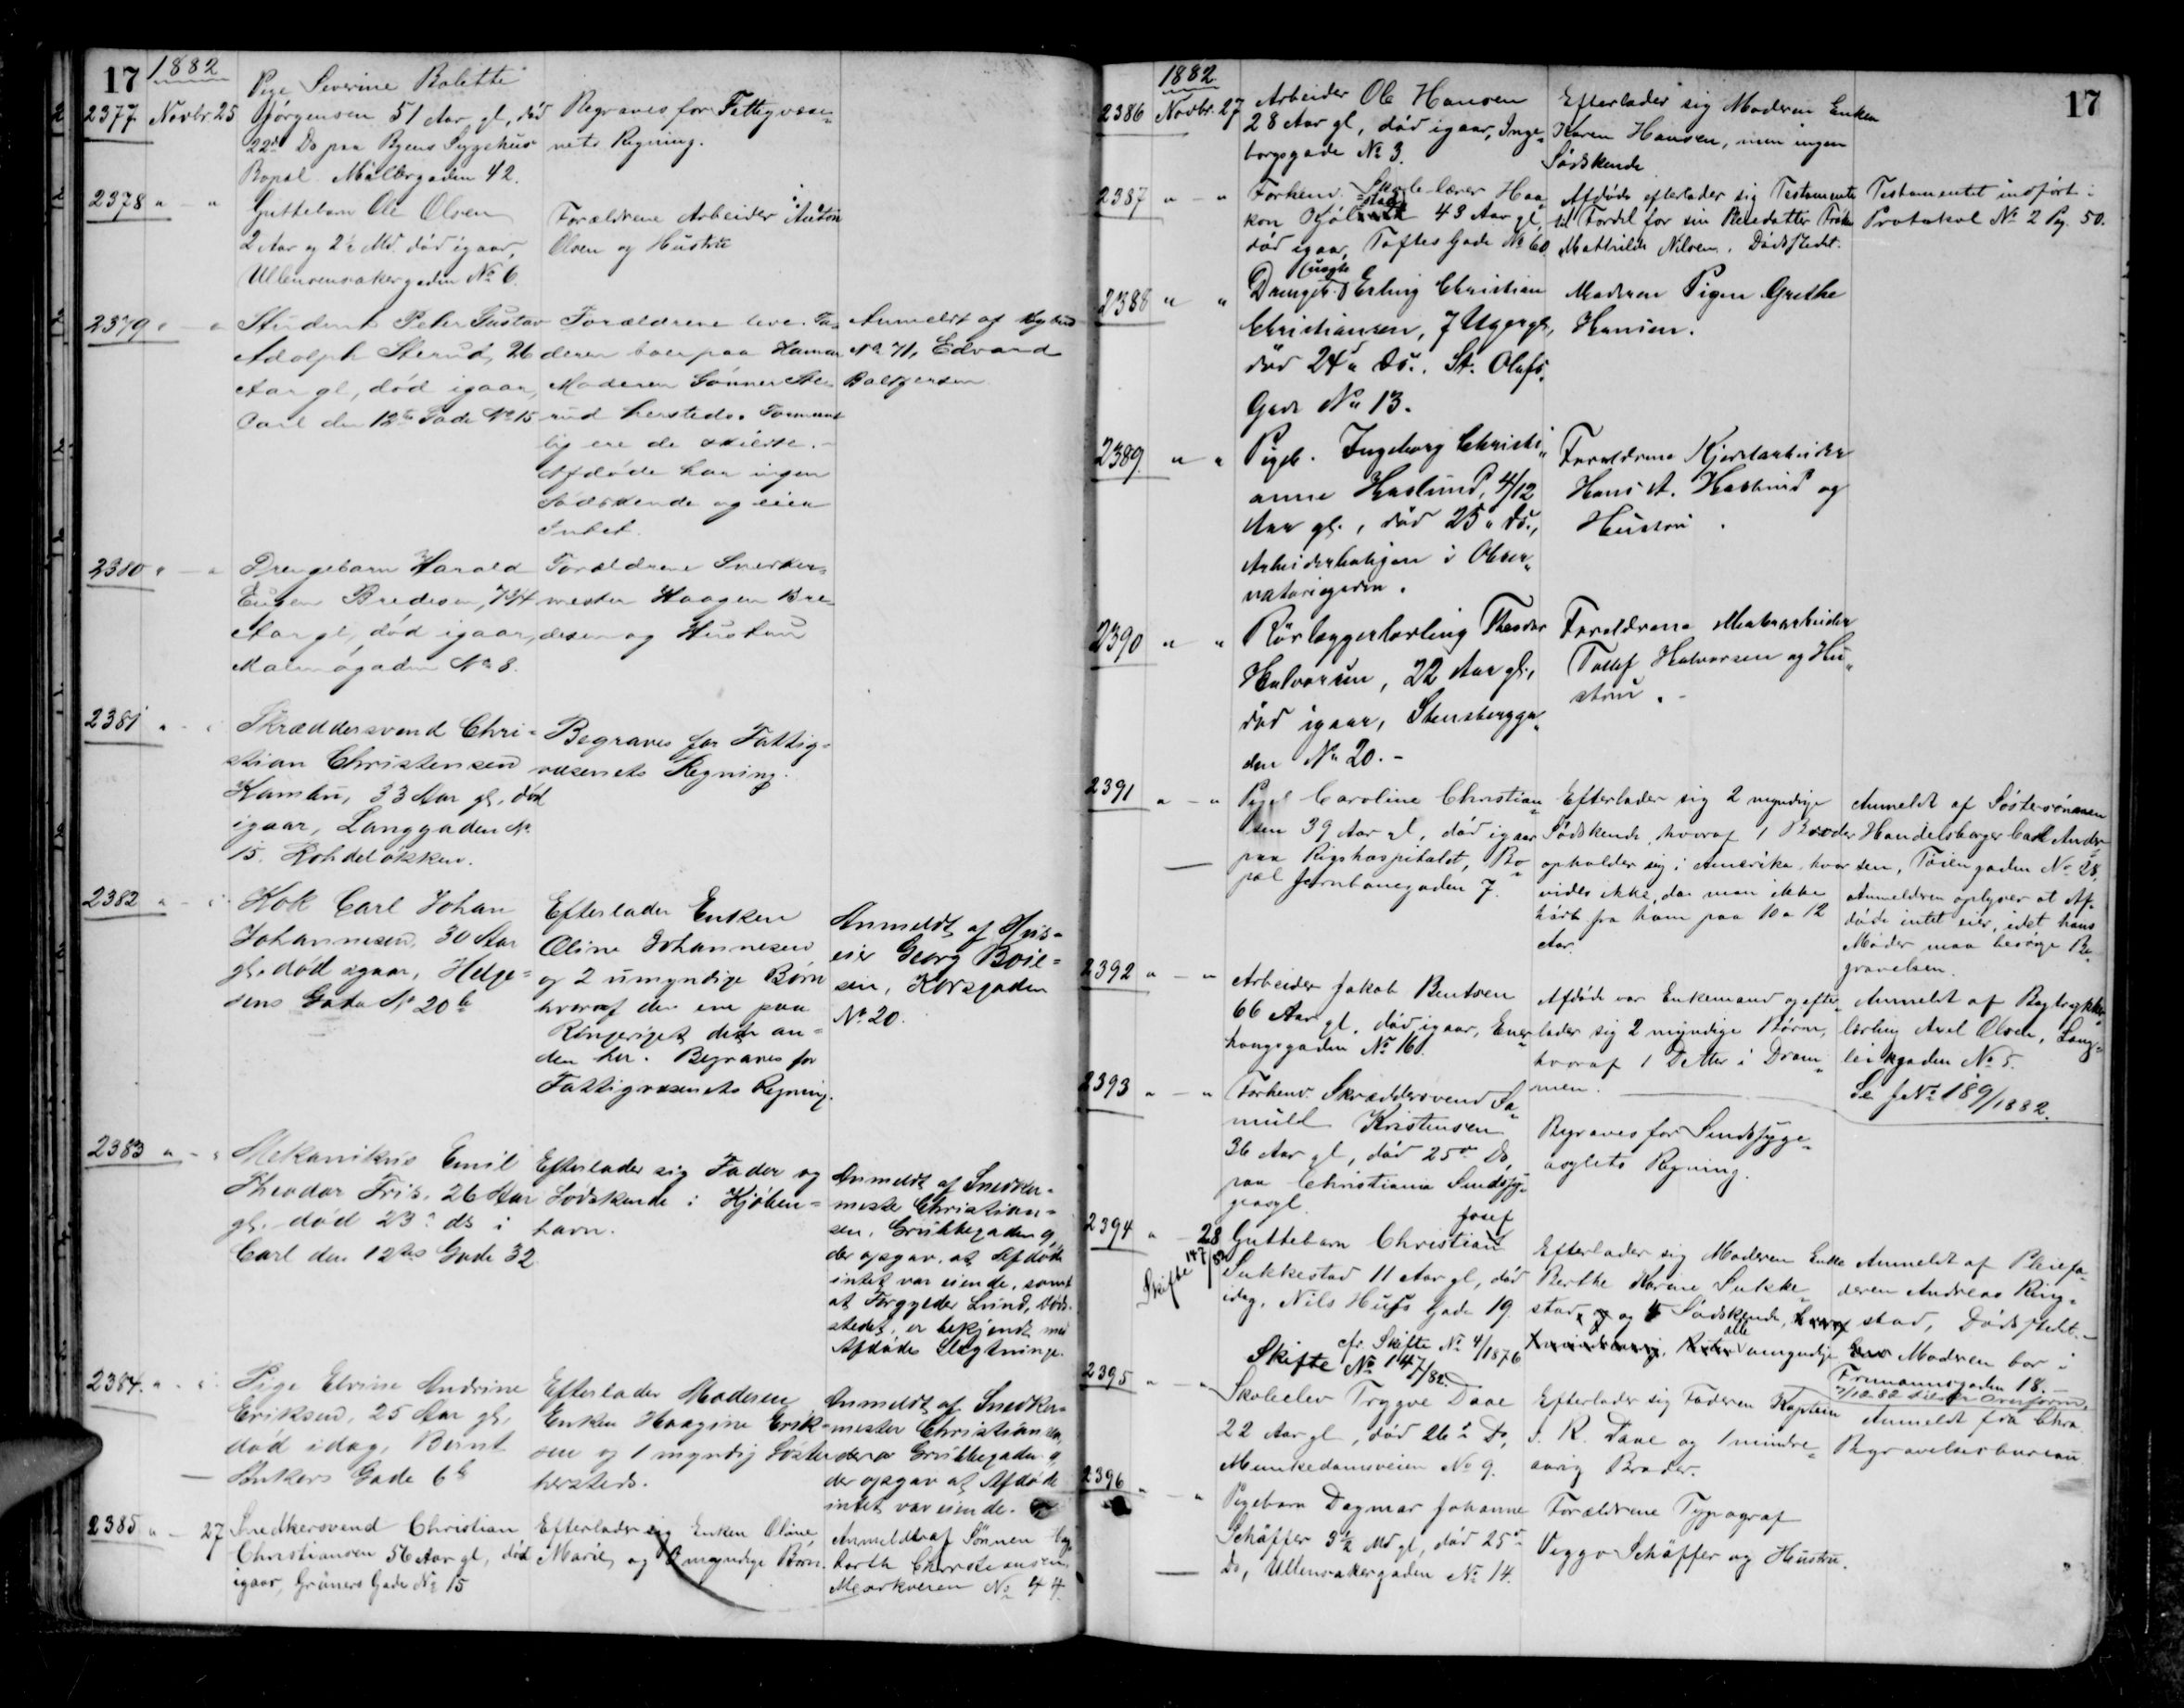 17
1882
2377 Novbr 25
Pige Severine Bolette
Jörgensen 51 Aar gl, död
22d Do paa Byens Sygehus
Bopæl Möllergaden 42.
Begraves for Fattigvæse-
nets Regning.
2378 " - "
Guttebarn Ole Olsen
2 Aar og 2½ Md. död igaar,
Ullensakergaden No 6.
Forældrene Arbeider Anton
Olsen og Hustru
2379 " - "
Student Peter Gustav
Adolph Sterud, 26
Aar gl, död igaar,
Carl den 12te Gade No 15
Forældrene leve. Fa-
deren boer paa Hamar
Moderen Gunner Ste-
rud hersteds.
lig ere de skilte. -
Afdöde har ingen
Södskende og eier
Intet.
Anmeldt af Bybud
No 71, Edvard
2380 " - "
Drengebarn Harald
Eugen Bredesen, 7 3/4
Aar gl, död igaar,
Malmögaden No 8.
Forældrene Snedker-
mester Haagen Bre-
desen og Hustru
2381 " - "
Skræddersvend Chri-
stian Christensen
33 Aar gl. död
igaar, Langgaden No
15. Rohdelökken.
Begraves for Fattig-
væsenets Regning.
2382 " - "
Kok Carl Johan
Johannesen, 30 Aar
gl. död igaar, Helge-
sens Gade No 20 b
Efterlader Enken
Oline Johannesen
og 2 umyndige Börn
hvoraf den ene paa
Ringeriget den an-
den her. Begraves for
Fattigvæsenets Regning.
Anmeldt af Hus-
eier Georg Boie-
sen, Korsgaden
No 20.
2383 " - "
Mekanikus Emil
Theodor Fris, 26 Aar
gl. död 23de ds i
Carl den 12tes Gade 32
Efterlader sig Fader og
Södskende i Kjöben-
havn.
Anmeldt af Snedker-
mester Christian-
sen, Grubbegaden 9,
der opgav, at Afdöde
intet var eiende, samt
at Forgylder Lund, Döds-
stedet, er bekjendt med
Afdödes Slægtninge.
2384. " - "
Pige Elvine Andrine
Eriksen, 25 Aar gl.
död idag, Bernt
Ankers Gade 6 b
Efterlader Moderen
Enken Haagine Erik-
sen og 1 myndig Söster
hersteds.
Anmeldt af Snedker-
mester Christiansen,
Grubbegaden 9,
der opgav at Afdöde
intet var eiende.
2385 " - 27
Snedkersvend Christian
Christiansen 56 Aar gl, död
igaar, Grüners Gade No 15
Efterlader sig Enken Oline
Marie, og myndige Börn.
Anmeldt af Sönnen
Christiansen
Markveien No 44.
17
1882
2386 Novbr. 27
Arbeider Ole Hansen
28 Aar gl, död igaar, Inge-
borgsgade No 3.
Efterlader sig Moderen Enken
Karen Hansen, men ingen
Södskende
2387 " - "
Forhenv. Skolelærer Haa-
kon 43 Aar gl,
död igaar, Toftes Gade No 60
Afdöde efterlader sig Testamente
til Fordel for sin Pleiedatter
Mathilde Nilsen. Dödsstedet.
Testamentet indfört i
Protokol No 2 Pg. 50.
2388 " "
Drengeb. (uægte) Erling Christian
Christiansen, 7 Uger gl,
död 24d ds. St. Olafs
Gade No 13.
Moderen Pigen Grethe
Hansen.
2389. " "
Pigeb. Ingeborg Christi-
anne Haslund, 4/12
Aar gl., död 25d ds.,
Arbeiderboligen i Obser-
vatoriegaden.
Forældrene Kjedelarbeider
Hans A. Haslund og
Hustru.
2390 " "
Rörlæggerlærling Theodor
Halvorsen, 22 Aar gl,
död igaar, Stensbergga-
den No 20. -
Forældrene
Tollef Halvorsen og Hu-
stru. -
2391 " - "
Pige Caroline Christian-
sen 39 Aar gl, död igaar
paa Rigshospitalet, Bo-
pæl Jernbanegaden 7.
Efterlader sig 2 myndige
Södskende hvoraf 1 Broder
opholder sig i Amerika, hvor
vides ikke, da man ikke
hört fra ham paa 10 a 12
Aar.
Anmeldt af Söstersönnen
Handelsborger Carl Ander-
sen, Töiengaden No 28,
Anmelderen oplyser at Af-
döde intet eier, idet hans
Moder maa besörge Be-
gravelsen.
2392 " - "
Arbeider Jakob Bentsen
66 Aar gl, död igaar, Ener-
haugsgaden No 16.
Afdöde var Enkemand og efter-
lader sig 2 myndige Börn,
hvoraf 1 Datter i Dram-
men.
Anmeldt af Bogtrykker-
lærling Axel Olsen, Lang-
leikgaden No 5.
Se f No 189/1882.
2393 " - "
Forhenv. Skræddersvend Sa-
muel Kristensen
36 Aar gl, död 25de Do,
paa Christiania Sindssy-
geasyl.
Begraves for Sindssyge-
asylets Regning.
2394 " - 28
Skifte 147/82
Guttebarn Christian Josef
Sukkestad 11 Aar gl, död
idag, Nils Hus Gade 19.
cfr. Skifte No 4/1876
Skifte No 147/82.
Efterlader sig Moderen Enke
Berthe Karine Sukke-
stad, og Södskende,
alle umyndige
Anmeldt af Pleiefa-
deren Andreas Ring-
stad, Dödsstedet. -
Moderen bor i
Fremannsgaden 18. -
2395 " - "
Skoleelev Trygve Daae
22 Aar gl, död 26de Do,
Munkedamsveien No 9.
Efterlader sig Faderen Kaptein
J. R. Daae og 1 mindre-
aarig Broder.
Anmeldt fra Chra
Begravelsesbureau
2396 " - "
Pigebarn Dagmar Johanne
Schäffer 3½ Md gl, död 25de
Do, Ullensakergaden No 14.
Forældrene Typograf
Viggo Schäffer og Hustru.